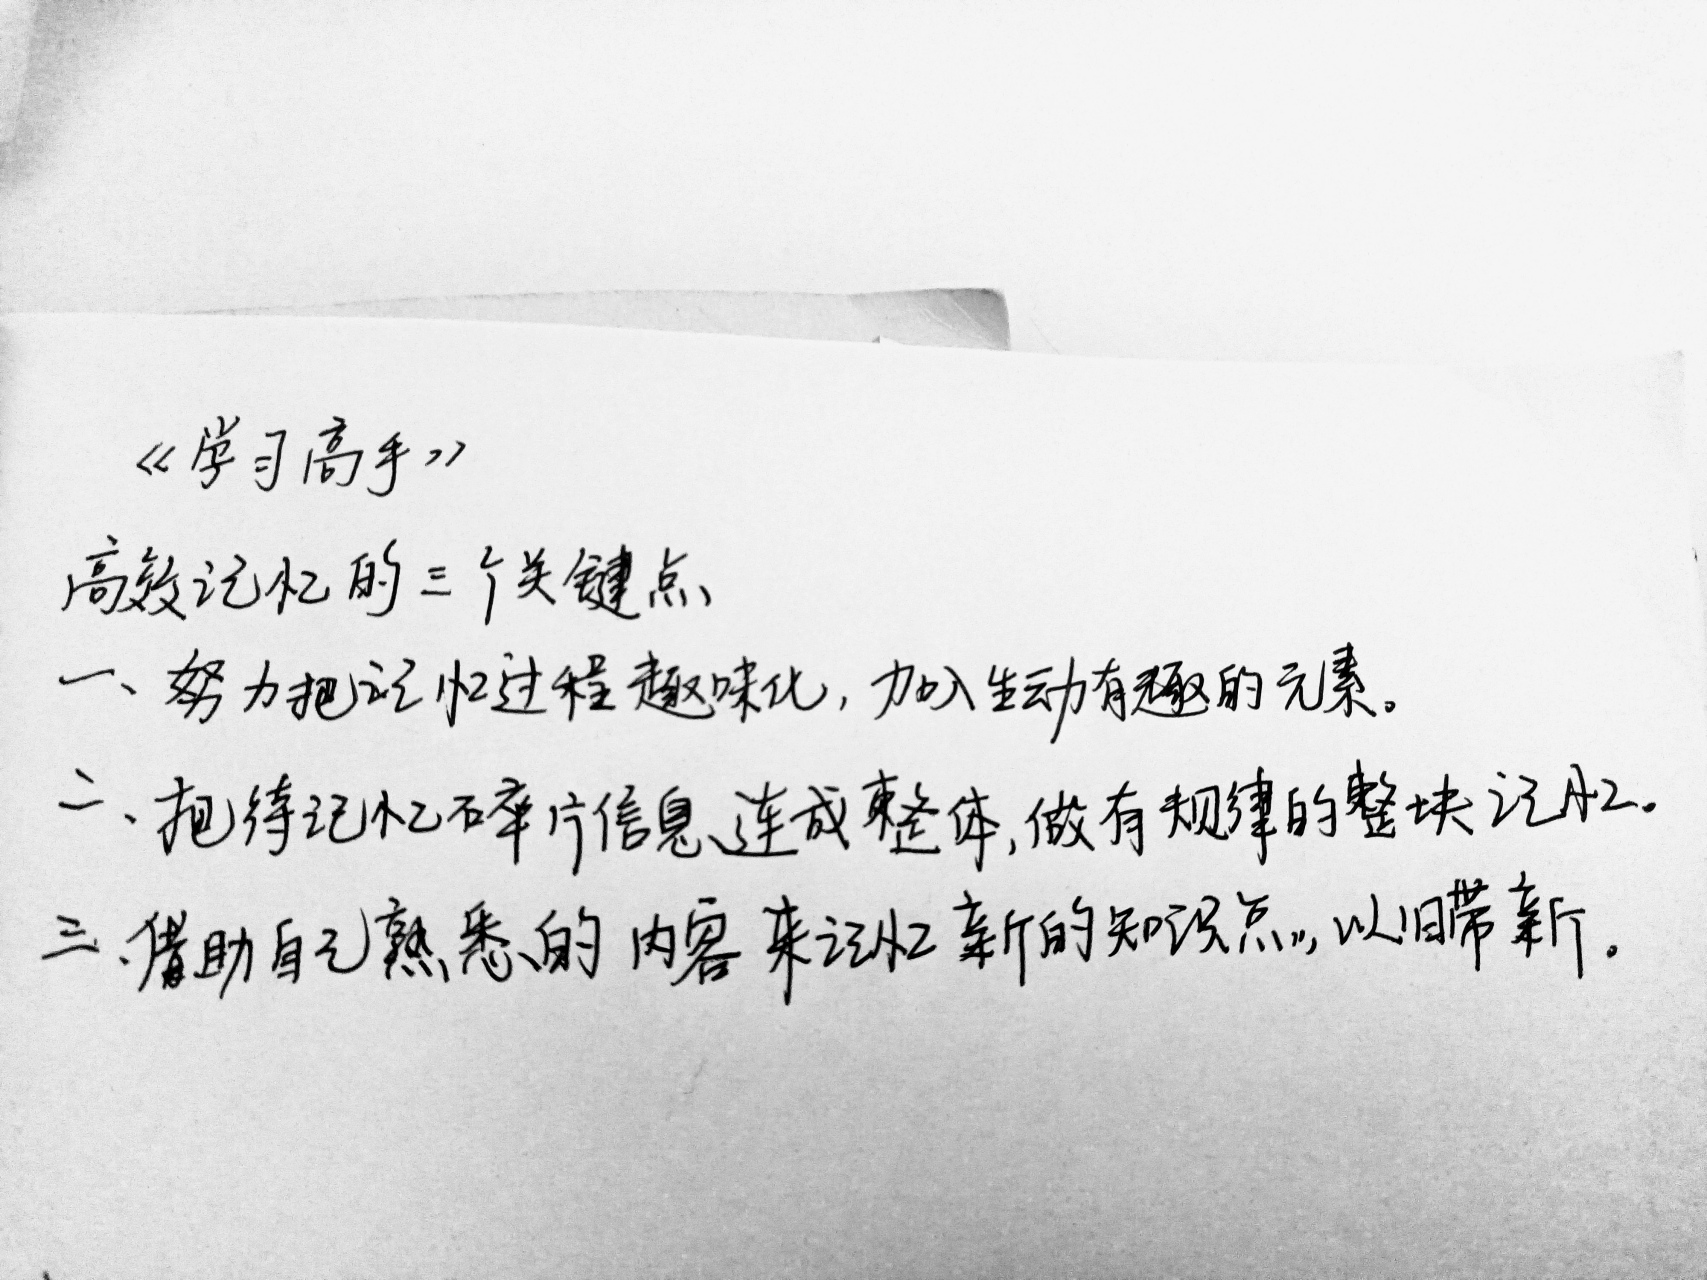 《学习高手》
高效记忆的三个关键点
一、努力把记忆过程趣味化，加入生动有趣的元素。
二、把待记忆碎片信息连成整体，做有规律的整块记忆。
三、借助自己熟悉的内容来记忆新的知识点，以旧带新。